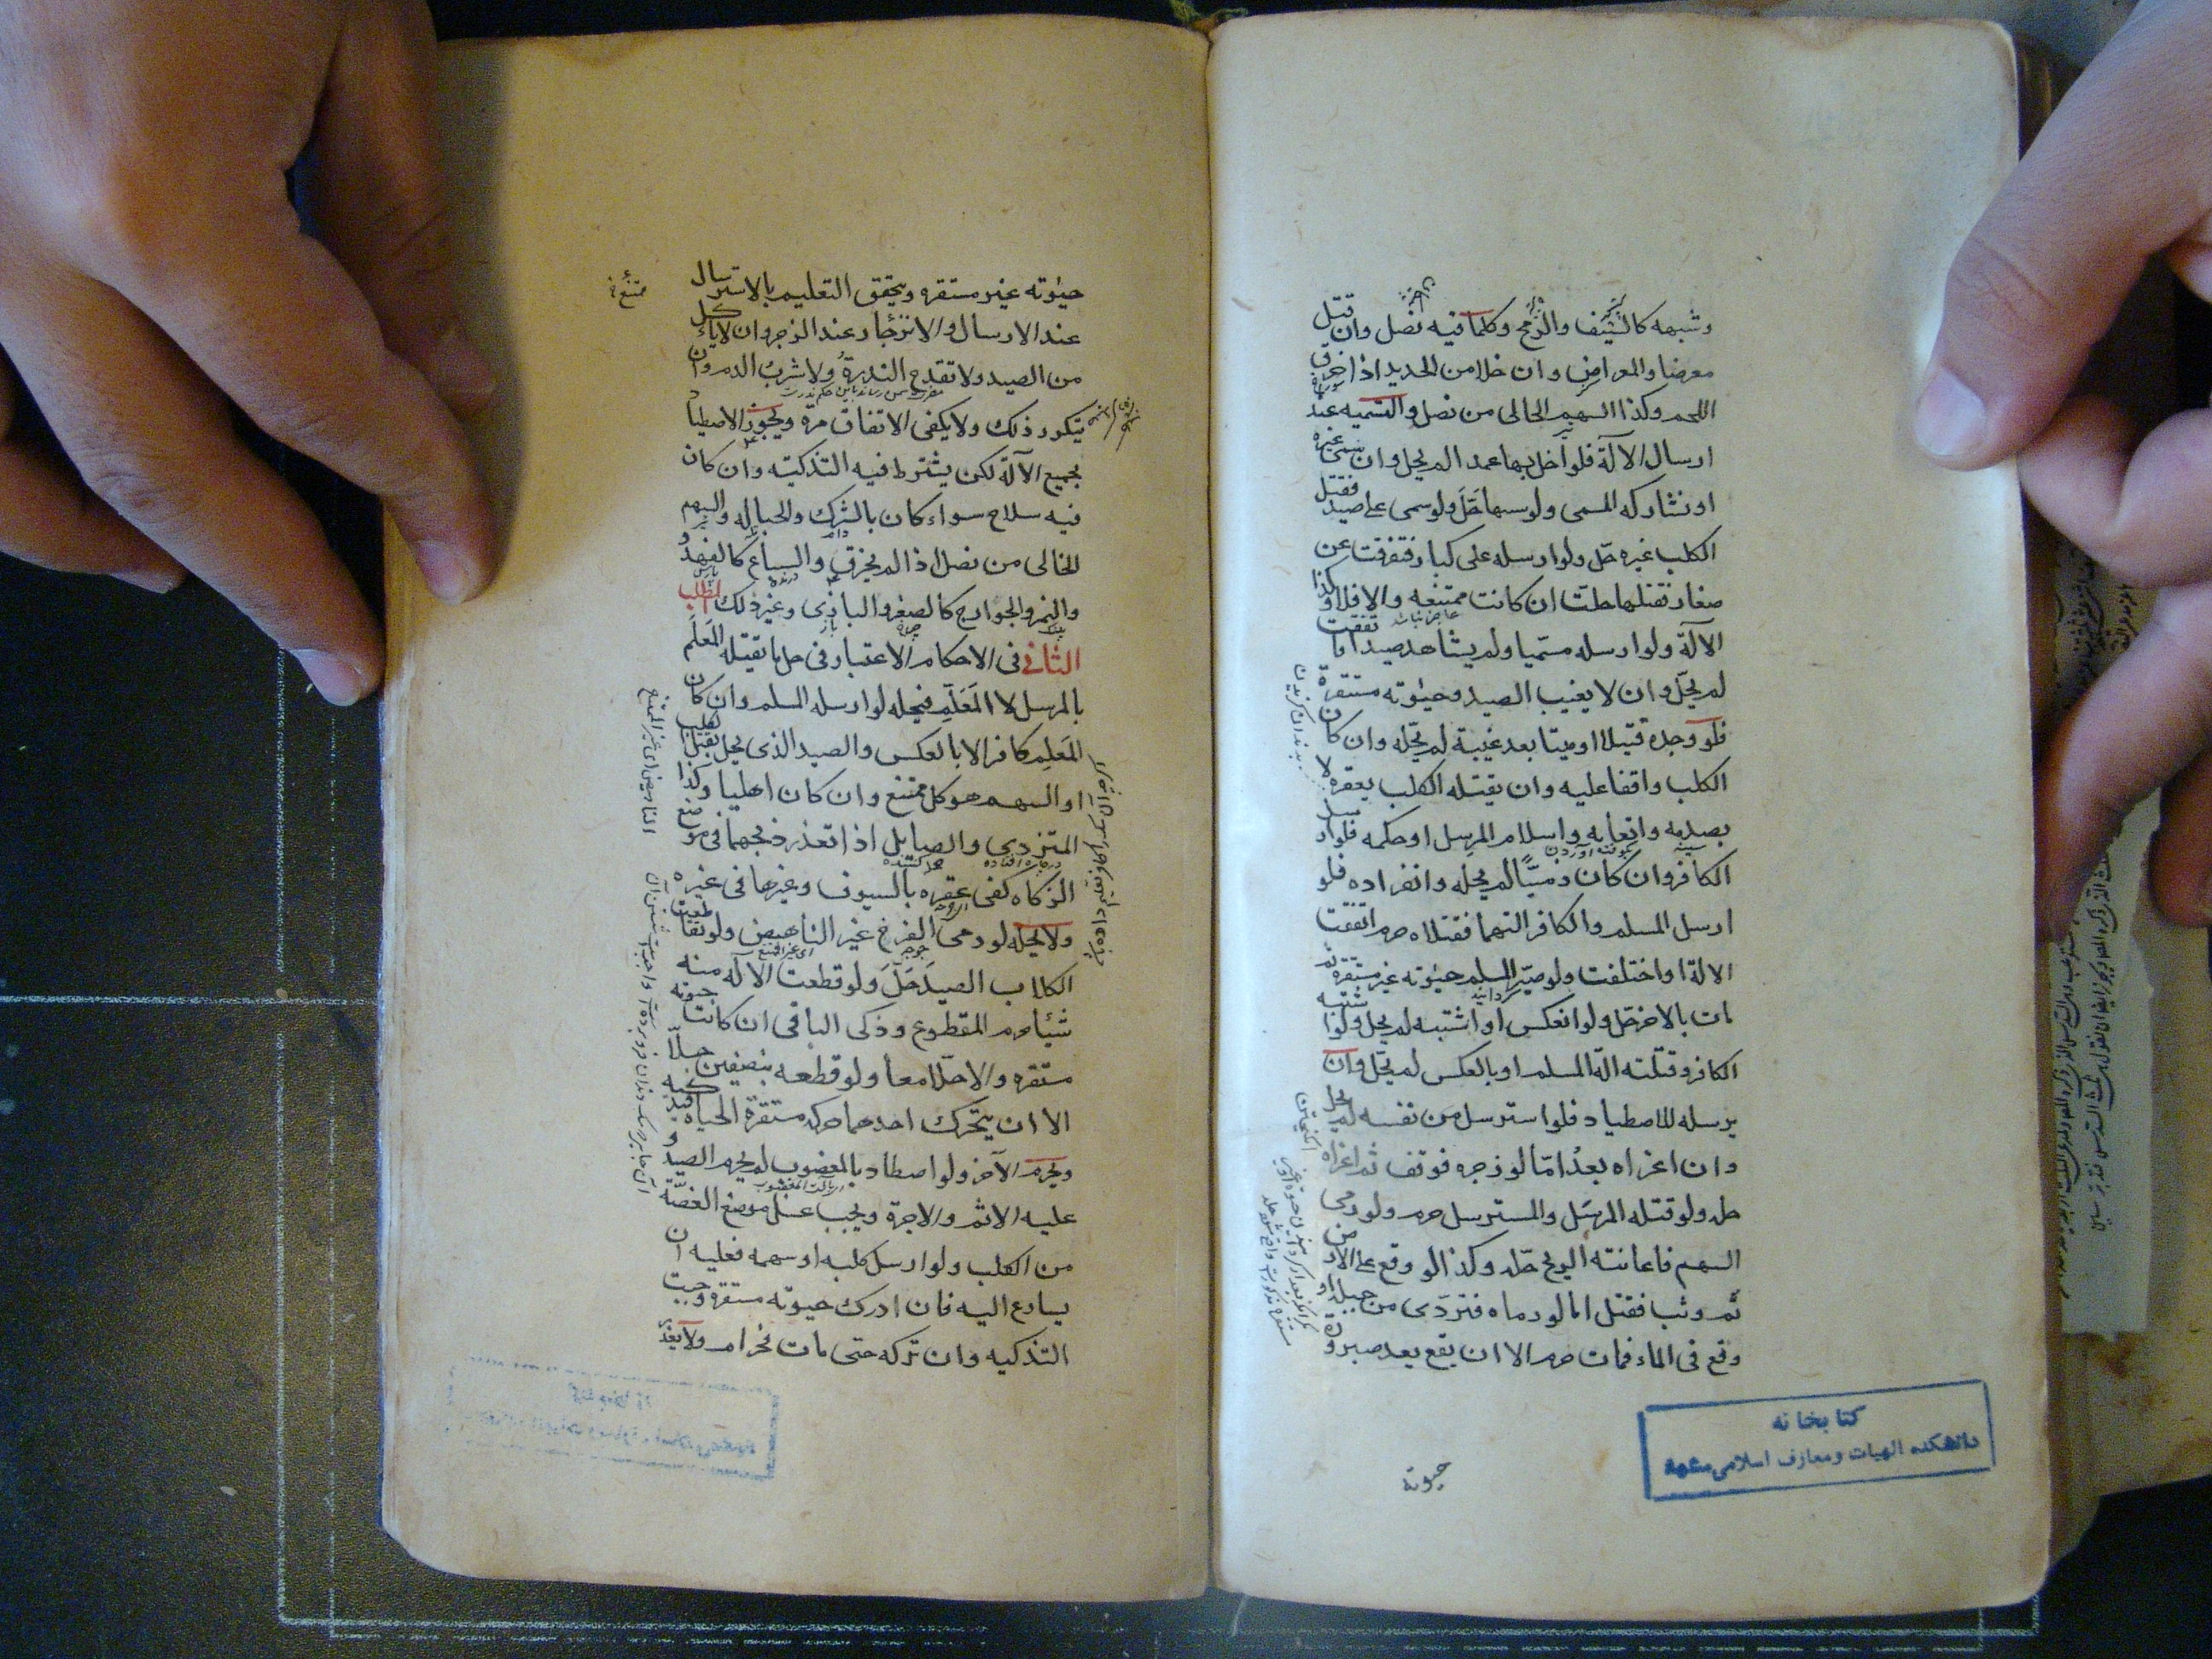 وشبهه كالسيف والرمح وكلما فيه نصل وان قتل
معرضا والمعراض وان خلا من الحديد اذا خرق
اللحم وكذا السهم الخالى من نصل والتسميه عند
ارسال الآلة فلو اخل بها عمدا لم يحل وان سمى غيره
او شاركه المسمى ولو سها حَلَّ ولو سمى على صيد فقتل
الكلب غيره حل ولو ارسله على كبار فتفرقت عن
صغار فقتلها حلت ان كانت ممتنعه والا فلا وكذا
الآلة ولو ارسله مسميا ولم يشاهد صيدا فاتفقت
لم يحل وان لا يغيب الصيد وحيوته مستقرة
فلو وجده قتيلا او ميتا بعد غيبة لم يحله وان كان
الكلب واقفا عليه وان يقتله الكلب بعقره لا
بصدمه واتعابه واسلام المرسل او حكمه فلو ارسل
الكافر وان كان ذميًّا لم يحله وانفراده فلو
ارسل المسلم والكافر التهما فقتلاه حرم اتفقت
الالة او اختلفت ولو صيّر المسلم حيوته غير مستقرة ثم
مات بالاخر حل ولو انعكس او اشتبه لم يحل ولو اثبته
الكافر وقتلته الة المسلم او بالعكس لم يحل وان
يرسله للاصطياد فلو استرسل من نفسه لم يحل
وان اغراه بعدُ امّا لو زجره فوقف ثم اغراه
حل ولو قتله المرسَل والمسترسل حرم ولو رمى
السهم فاعانته الريح حل وكذا لو وقع على الارض
ثم وثب فقتل اما لو رماه فتردى من جبل او
وقع فى الماء فمات حرم الا ان يقع بعد صيرورة
حيوته
كتابخانه
دانشكده الهيات ومعارف اسلامى مشهد
حيوته غير مستقره ويتحقق التعليم بالاسترسال
عند الارسال والانزجار عند الزجر وان لا ياكل
من الصيد ولا تقدح الندرة ولا شرب الدم وان
يتكرر ذلك ولا يكفى الاتفاق مرة ويجوز الاصطياد
بجميع الآلة لكن يشترط فيه التذكيته وان كان
فيه سلاح سواء كان بالشرك والحباله والسهم
الخالى من نصل اذا لم يخرق والسباع كالفهد
والنمر والجوارح كالصقر والبازى وغير ذلك المطلب
الثانى فى الاحكام الاعتبار فى حل ما يقتله المعلَم
بالمرسل لا المعَلِّم فيحله لو ارسله المسلم وان كان
المعَلِم كافرا لا بالعكس والصيد الذى يحل بقتل الكلب
او السهم هو كل ممتنع وان كان اهليا وكذا
المتردى والصايل اذا تعذر ذبحهما فى موضع
الزكاه كفى عقره بالسيوف وغيرها فى غيره
ولا يحله لو رمى الفرخ غير الناهض ولو تقاطعت
الكلاب الصيدَ حَلَّ ولو قطعت الآله منه
شيئا حرم المقطوع وذكى الباقى ان كانت حيوته
مستقره والا حلّا معا ولو قطعه بنصفين حلّا
الا ان يتحرك احدهما حركه مستقرة الحياه
ويحرم الآخر ولو اصطاد بالمغصوب لم يحرم الصيد و
عليه الاثم والاجرة ويجب غسل موضع العضّة
من الكلب ولو ارسل كلبه او سهمه فعليه ان
يسارع اليه فان ادرك حيوته مستقره وجبت
التذكيه وان تركه حتى مات فحرام ولا يعذر